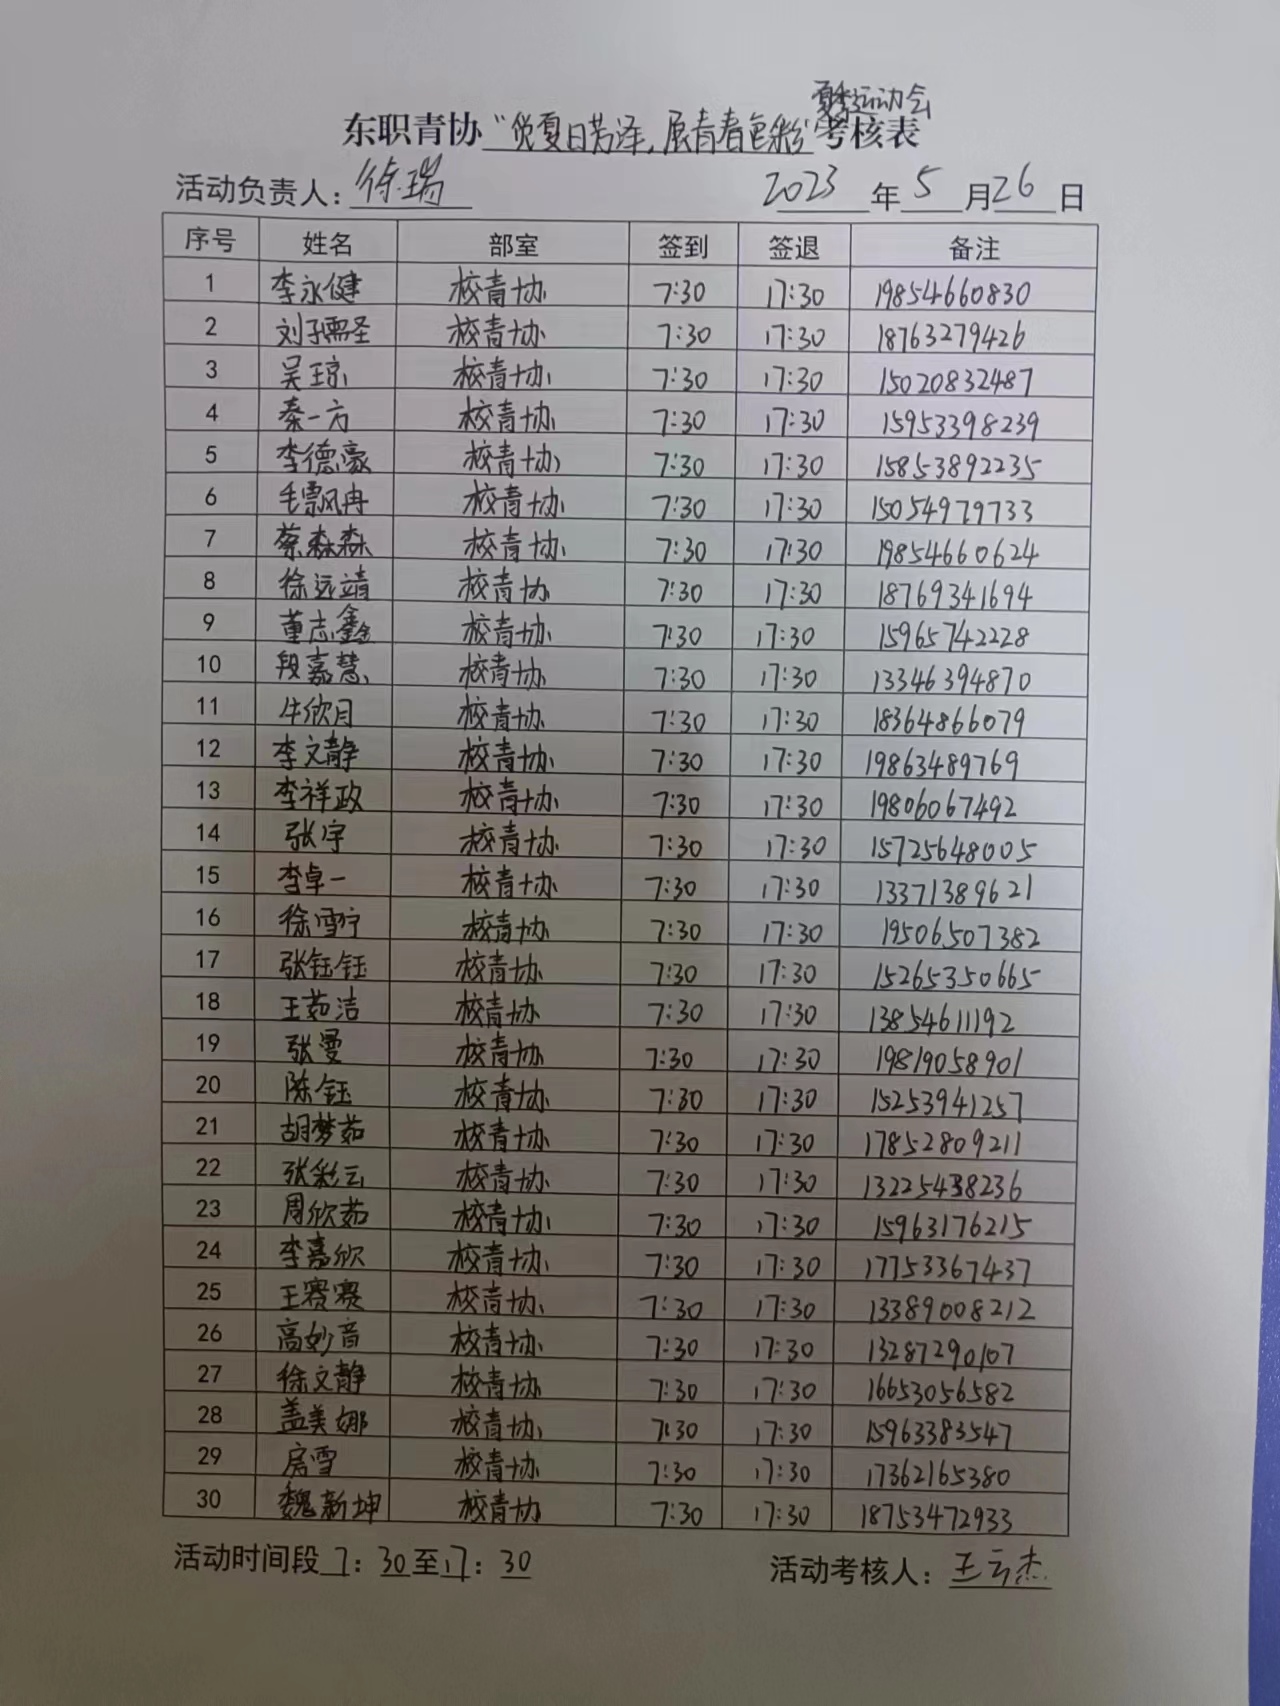 夏季运动会
东职青协“悦夏日芳泽,展青春色彩”考核表
活动负责人:徐瑞 2023年5月26日
序号 姓名 部室 签到 签退 备注
1 李永健 校青协 7:30 17:30 19854660830
2 刘子孺圣 校青协 7:30 17:30 18763279426
3 吴琼 校青协 7:30 17:30 15020832487
4 秦一方 校青协 7:30 17:30 15953398239
5 李德豪 校青协 7:30 17:30 15853892235
6 毛飘冉 校青协 7:30 17:30 15054979733
7 蔡森森 校青协 7:30 17:30 19854660624
8 徐远靖 校青协 7:30 17:30 18769341694
9 董志鑫 校青协 7:30 17:30 15965742228
10 段嘉慧 校青协 7:30 17:30 13346394870
11 牛欣月 校青协 7:30 17:30 18364866079
12 李文静 校青协 7:30 17:30 19863489769
13 李祥政 校青协 7:30 17:30 19806067492
14 张宇 校青协 7:30 17:30 15725648005
15 李卓一 校青协 7:30 17:30 13371389621
16 徐雪宁 校青协 7:30 17:30 19506507382
17 张钰钰 校青协 7:30 17:30 15265350665
18 王茹洁 校青协 7:30 17:30 13854611192
19 张曼 校青协 7:30 17:30 19819058901
20 陈钰 校青协 7:30 17:30 15253941257
21 胡梦茹 校青协 7:30 17:30 17852809211
22 张彩云 校青协 7:30 17:30 13225438236
23 周欣茹 校青协 7:30 17:30 15963176215
24 李嘉欣 校青协 7:30 17:30 17753367437
25 王赛赛 校青协 7:30 17:30 13389008212
26 高妙音 校青协 7:30 17:30 13287290107
27 徐文静 校青协 7:30 17:30 16653056582
28 盖美娜 校青协 7:30 17:30 15963383547
29 房雪 校青协 7:30 17:30 17362165380
30 魏新坤 校青协 7:30 17:30 18753472933
活动时间段 7:30至17:30 活动考核人:王云杰